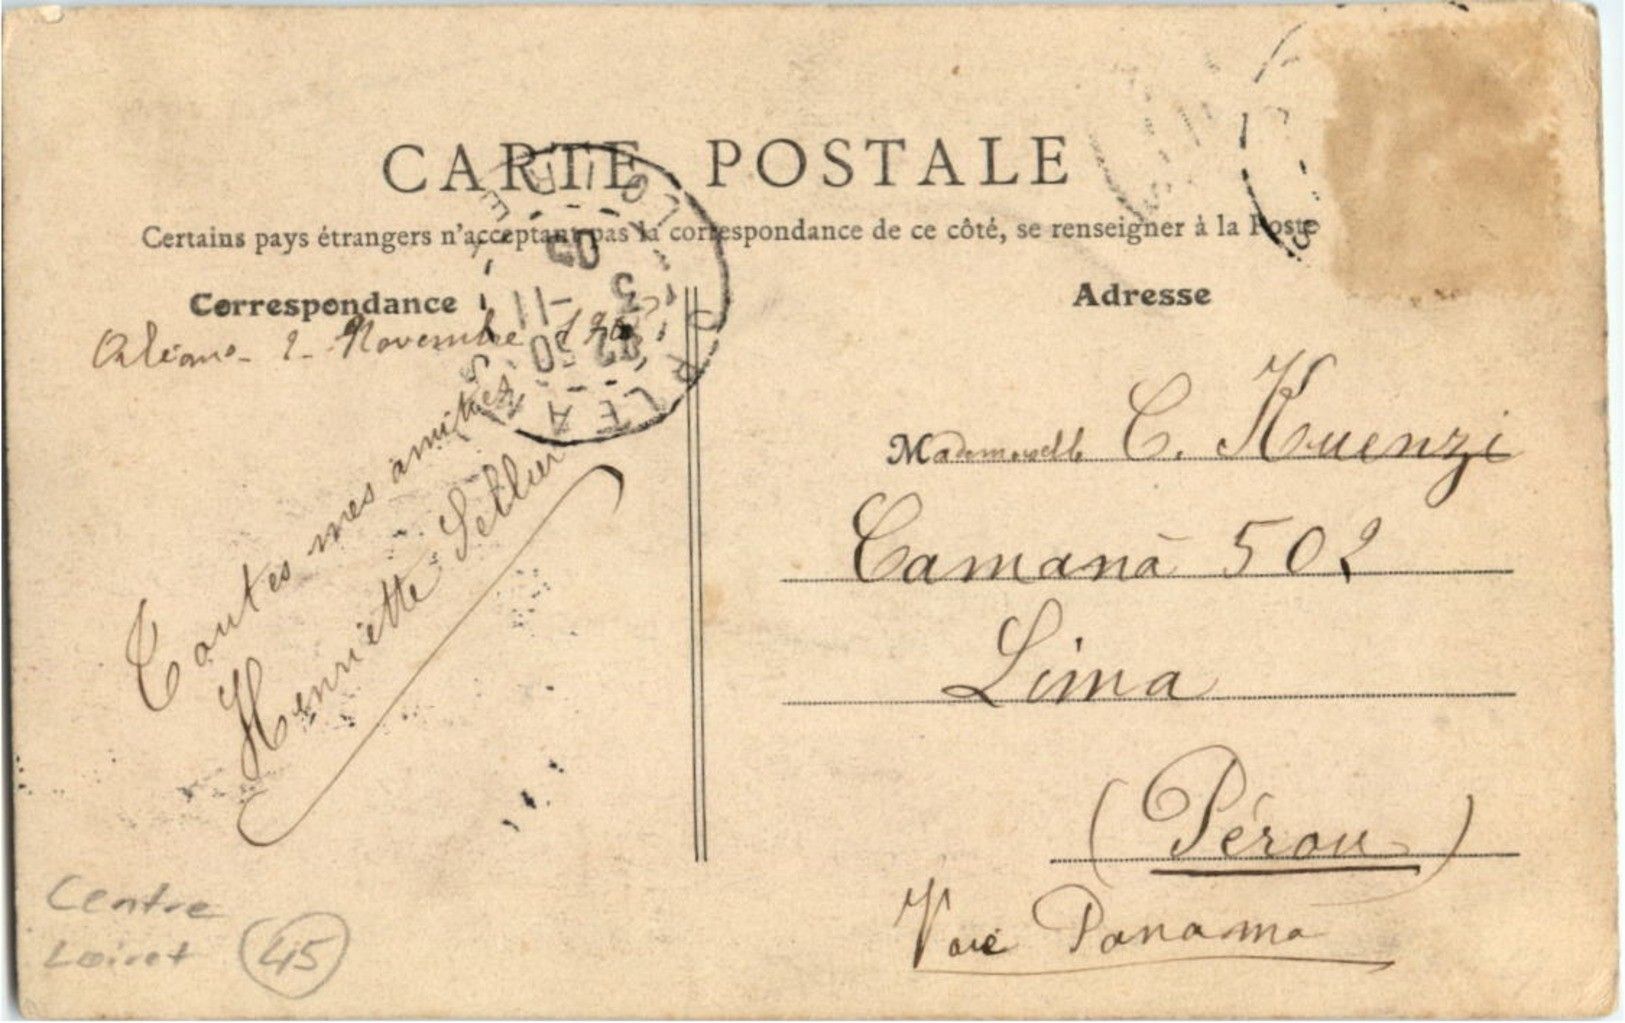 CARTE POSTALE
Certains pays étrangers n'acceptant pas la correspondance de ce côté, se renseigner à la Poste
Correspondance
Orléans - 2 - Novembre
Toutes mes amitiés
Henriette Sellier
ORLEANS
LOIRET
3 -11
05
Adresse
Mademoiselle C. Kuenzi
Camanà 502
Lima
(Pérou)
Voie Panama
Centre
Loiret 45